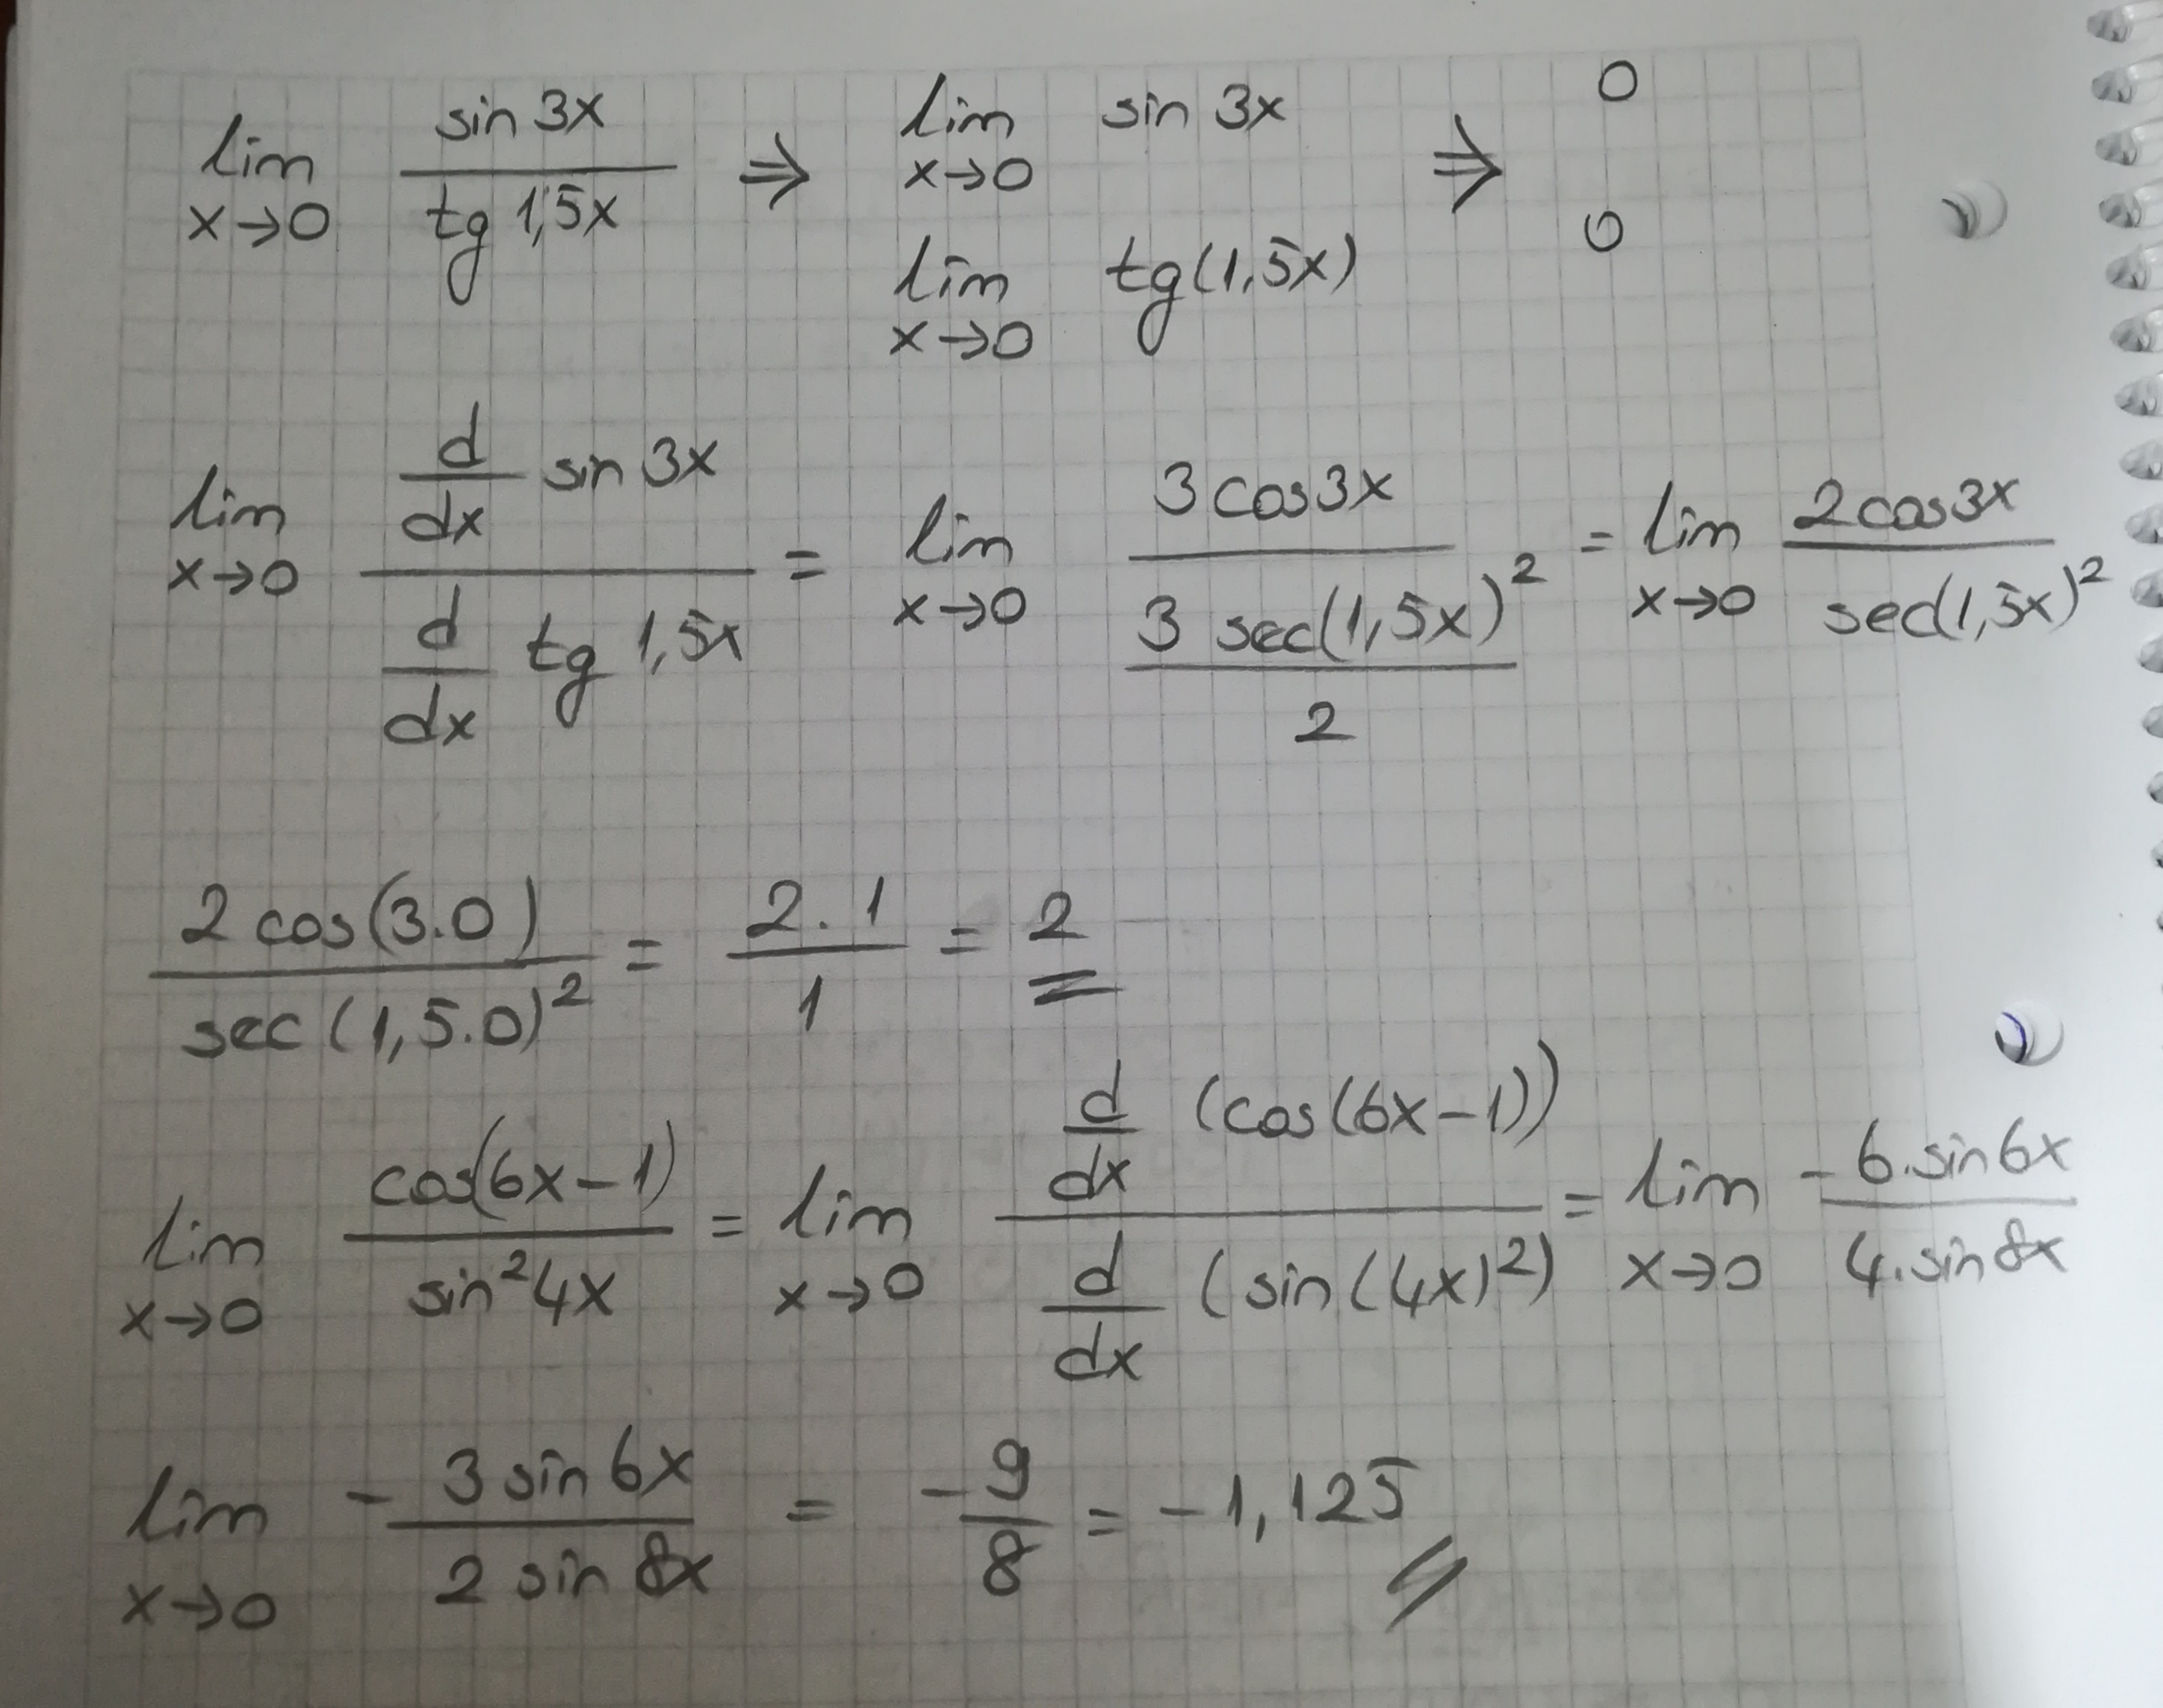 lim x→0 sin 3x / tg 1,5x ⇒ lim x→0 sin 3x / lim x→0 tg(1,5x) ⇒ 0 / 0
lim x→0 (d/dx sin 3x) / (d/dx tg 1,5x) = lim x→0 3 cos3x / (3 sec(1,5x)² / 2) = lim x→0 2cos3x / sec(1,5x)²
2 cos(3.0) / sec(1,5.0)² = 2.1 / 1 = 2
lim x→0 cos(6x-1) / sin²4x = lim x→0 (d/dx (cos(6x-1))) / (d/dx (sin(4x)²)) = lim x→0 -6.sin6x / 4.sin8x
lim x→0 - 3 sin 6x / 2 sin 8x = -9/8 = -1,125